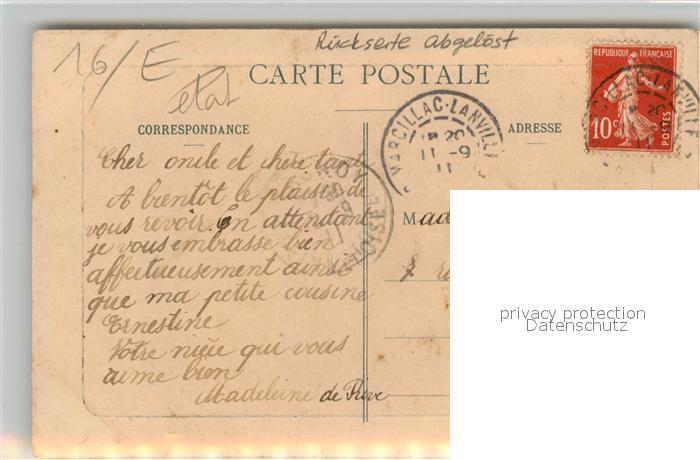 16/E
Rückseite abgelöst
etat
CARTE POSTALE
RÉPUBLIQUE FRANÇAISE
10c
POSTES
CORRESPONDANCE
ADRESSE
MARCILLAC-LANVILLE
20
11 -9
11
Cher oncle et chère tante
A bientôt le plaisir de
vous revoir. En attendant
je vous embrasse bien
affectueusement ainsi
que ma petite cousine
Ernestine
Votre nièce qui vous
aime bien
Madeleine de
OISE
Mad
privacy protection
Datenschutz